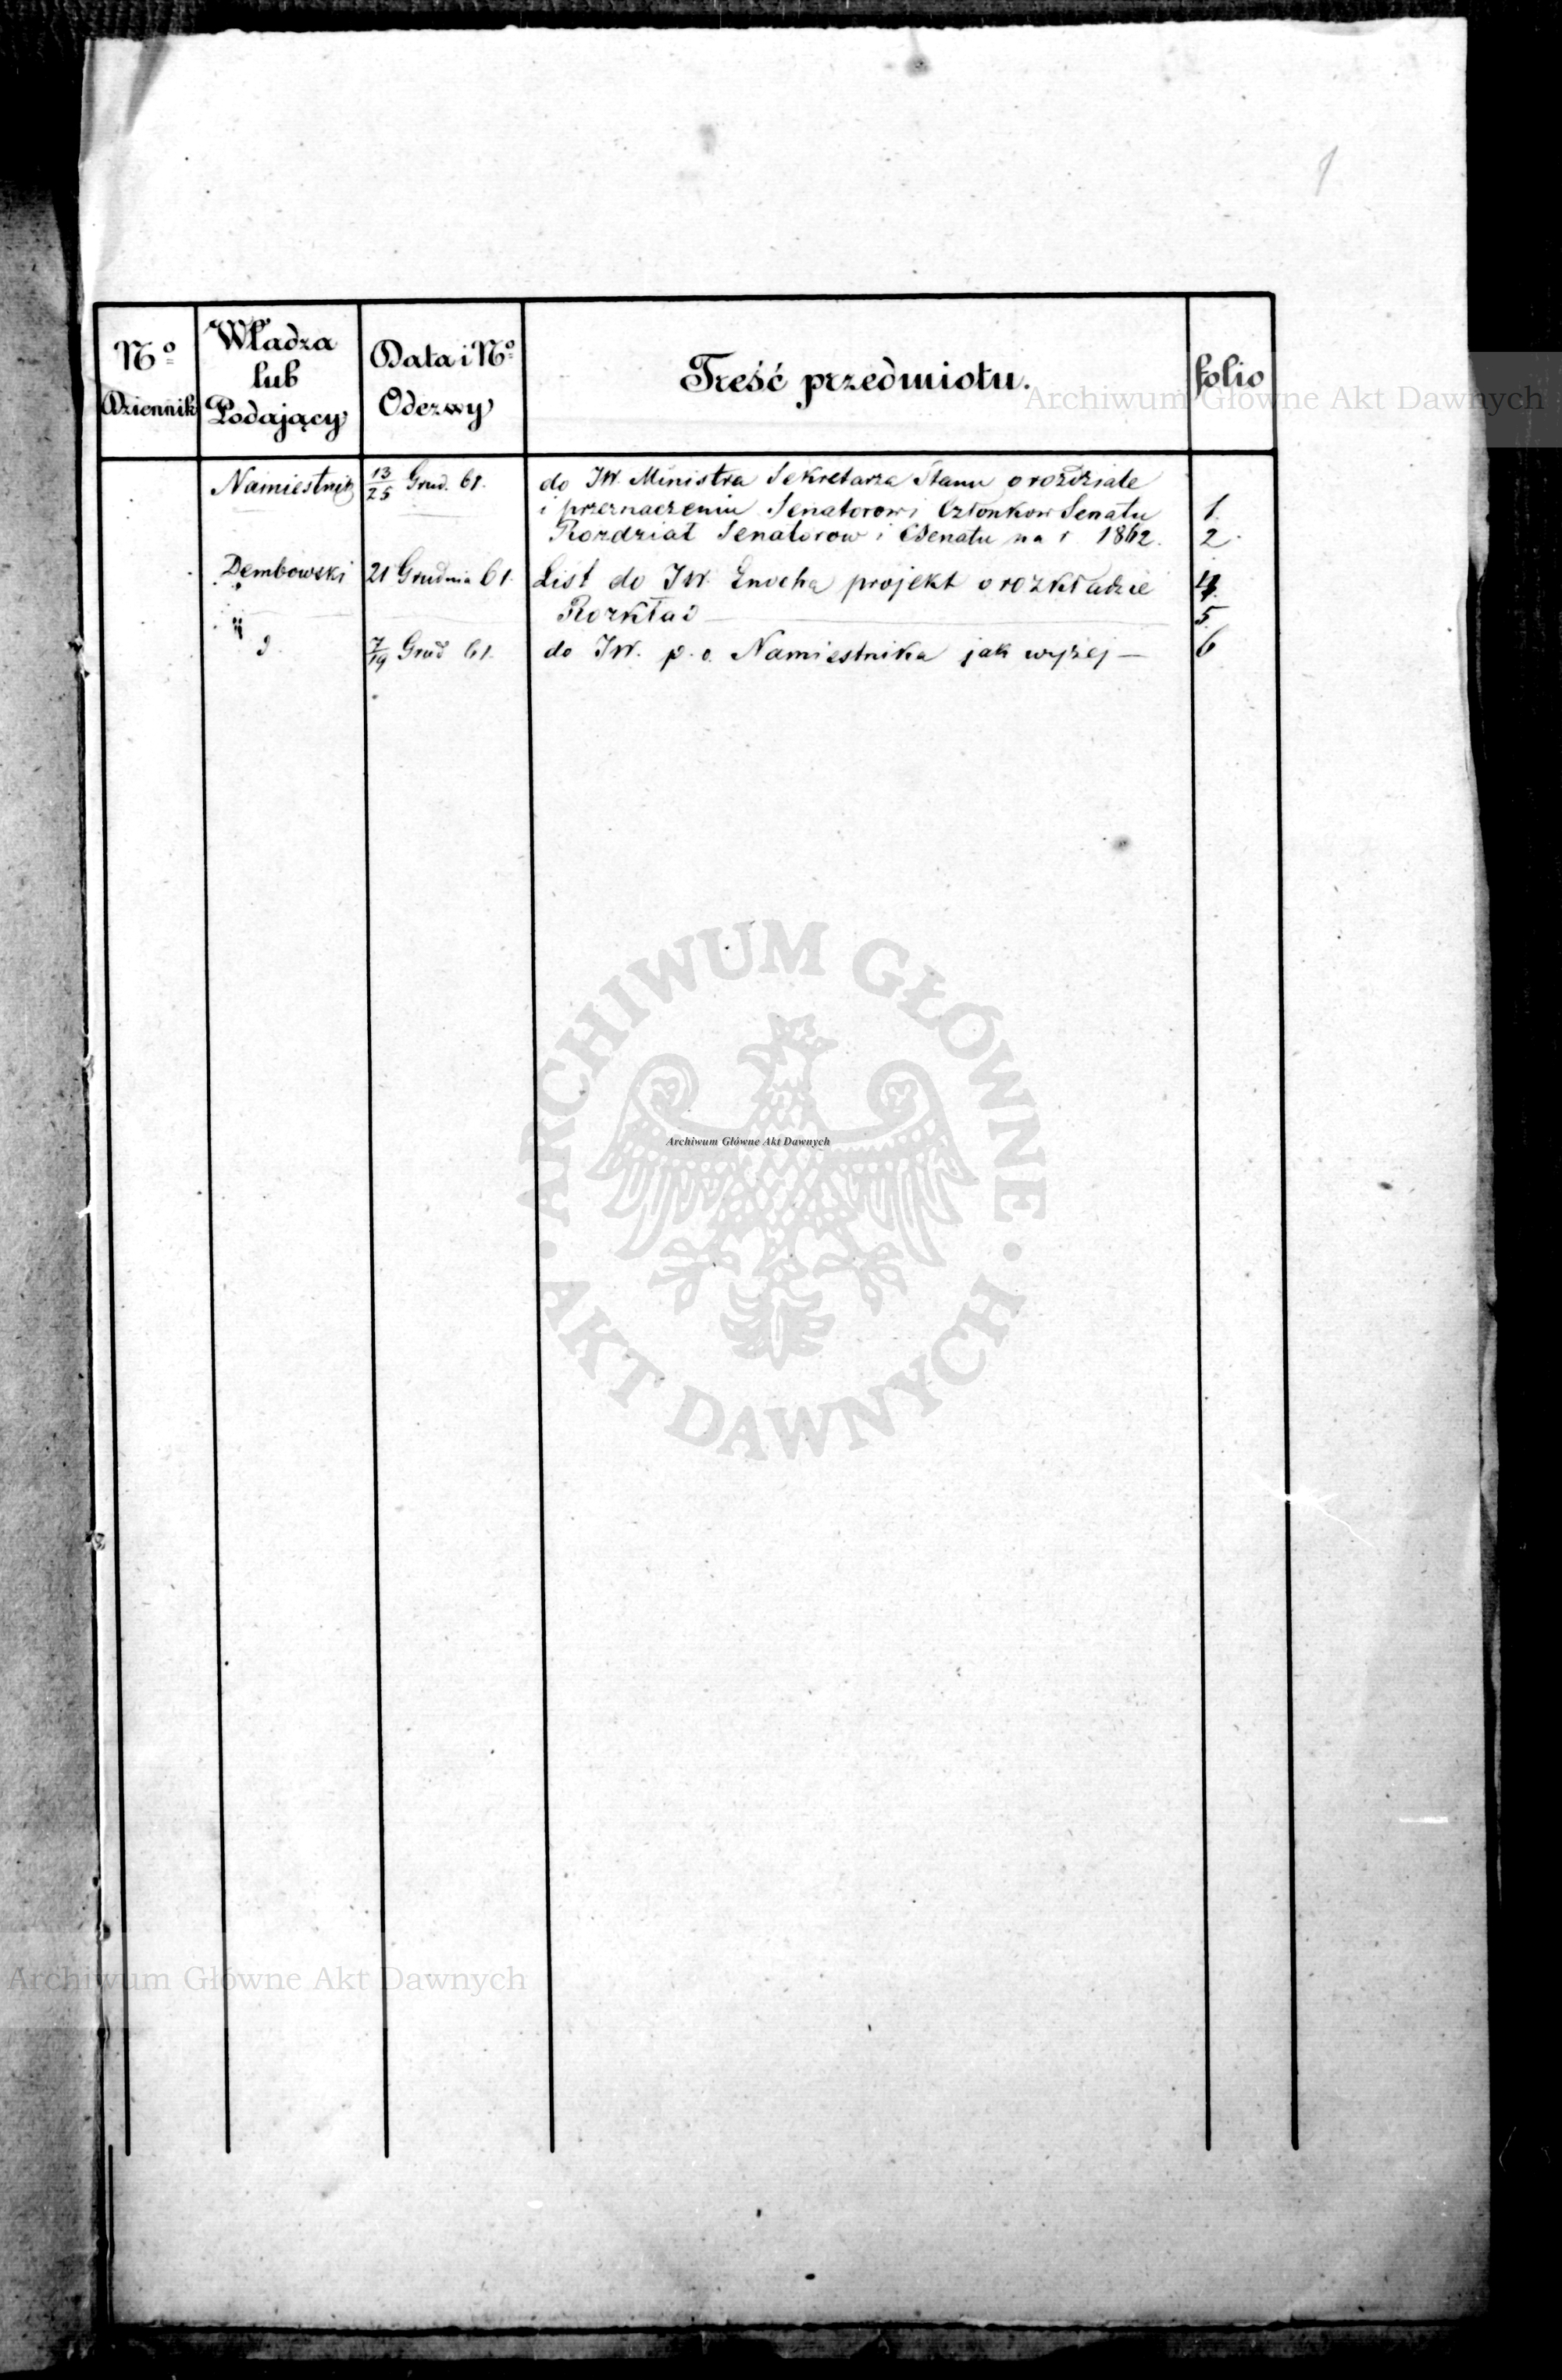 1
Nº Dziennik
Władza lub Podający
Data i Nº Odezwy
Treść przedmiotu.
folio
Namiestnik 13/25 Grud. 61. do JW. Ministra Sekretarza Stanu o rozdziale
i przeznaczeniu Senatorow i Członkow Senatu 1.
Rozdział Senatorow i Senatu na r 1862. 2.
Dembowski 21 Grudnia 61. List do JW. Enocha projekt o rozkładzie 4.
" Rozkład — 5.
7/19 Grud 61. do JW. p. o. Namiestnika jak wyżej — 6
Archiwum Główne Akt Dawnych
ARCHIWUM GŁÓWNE · AKT DAWNYCH ·
Archiwum Główne Akt Dawnych
Archiwum Główne Akt Dawnych